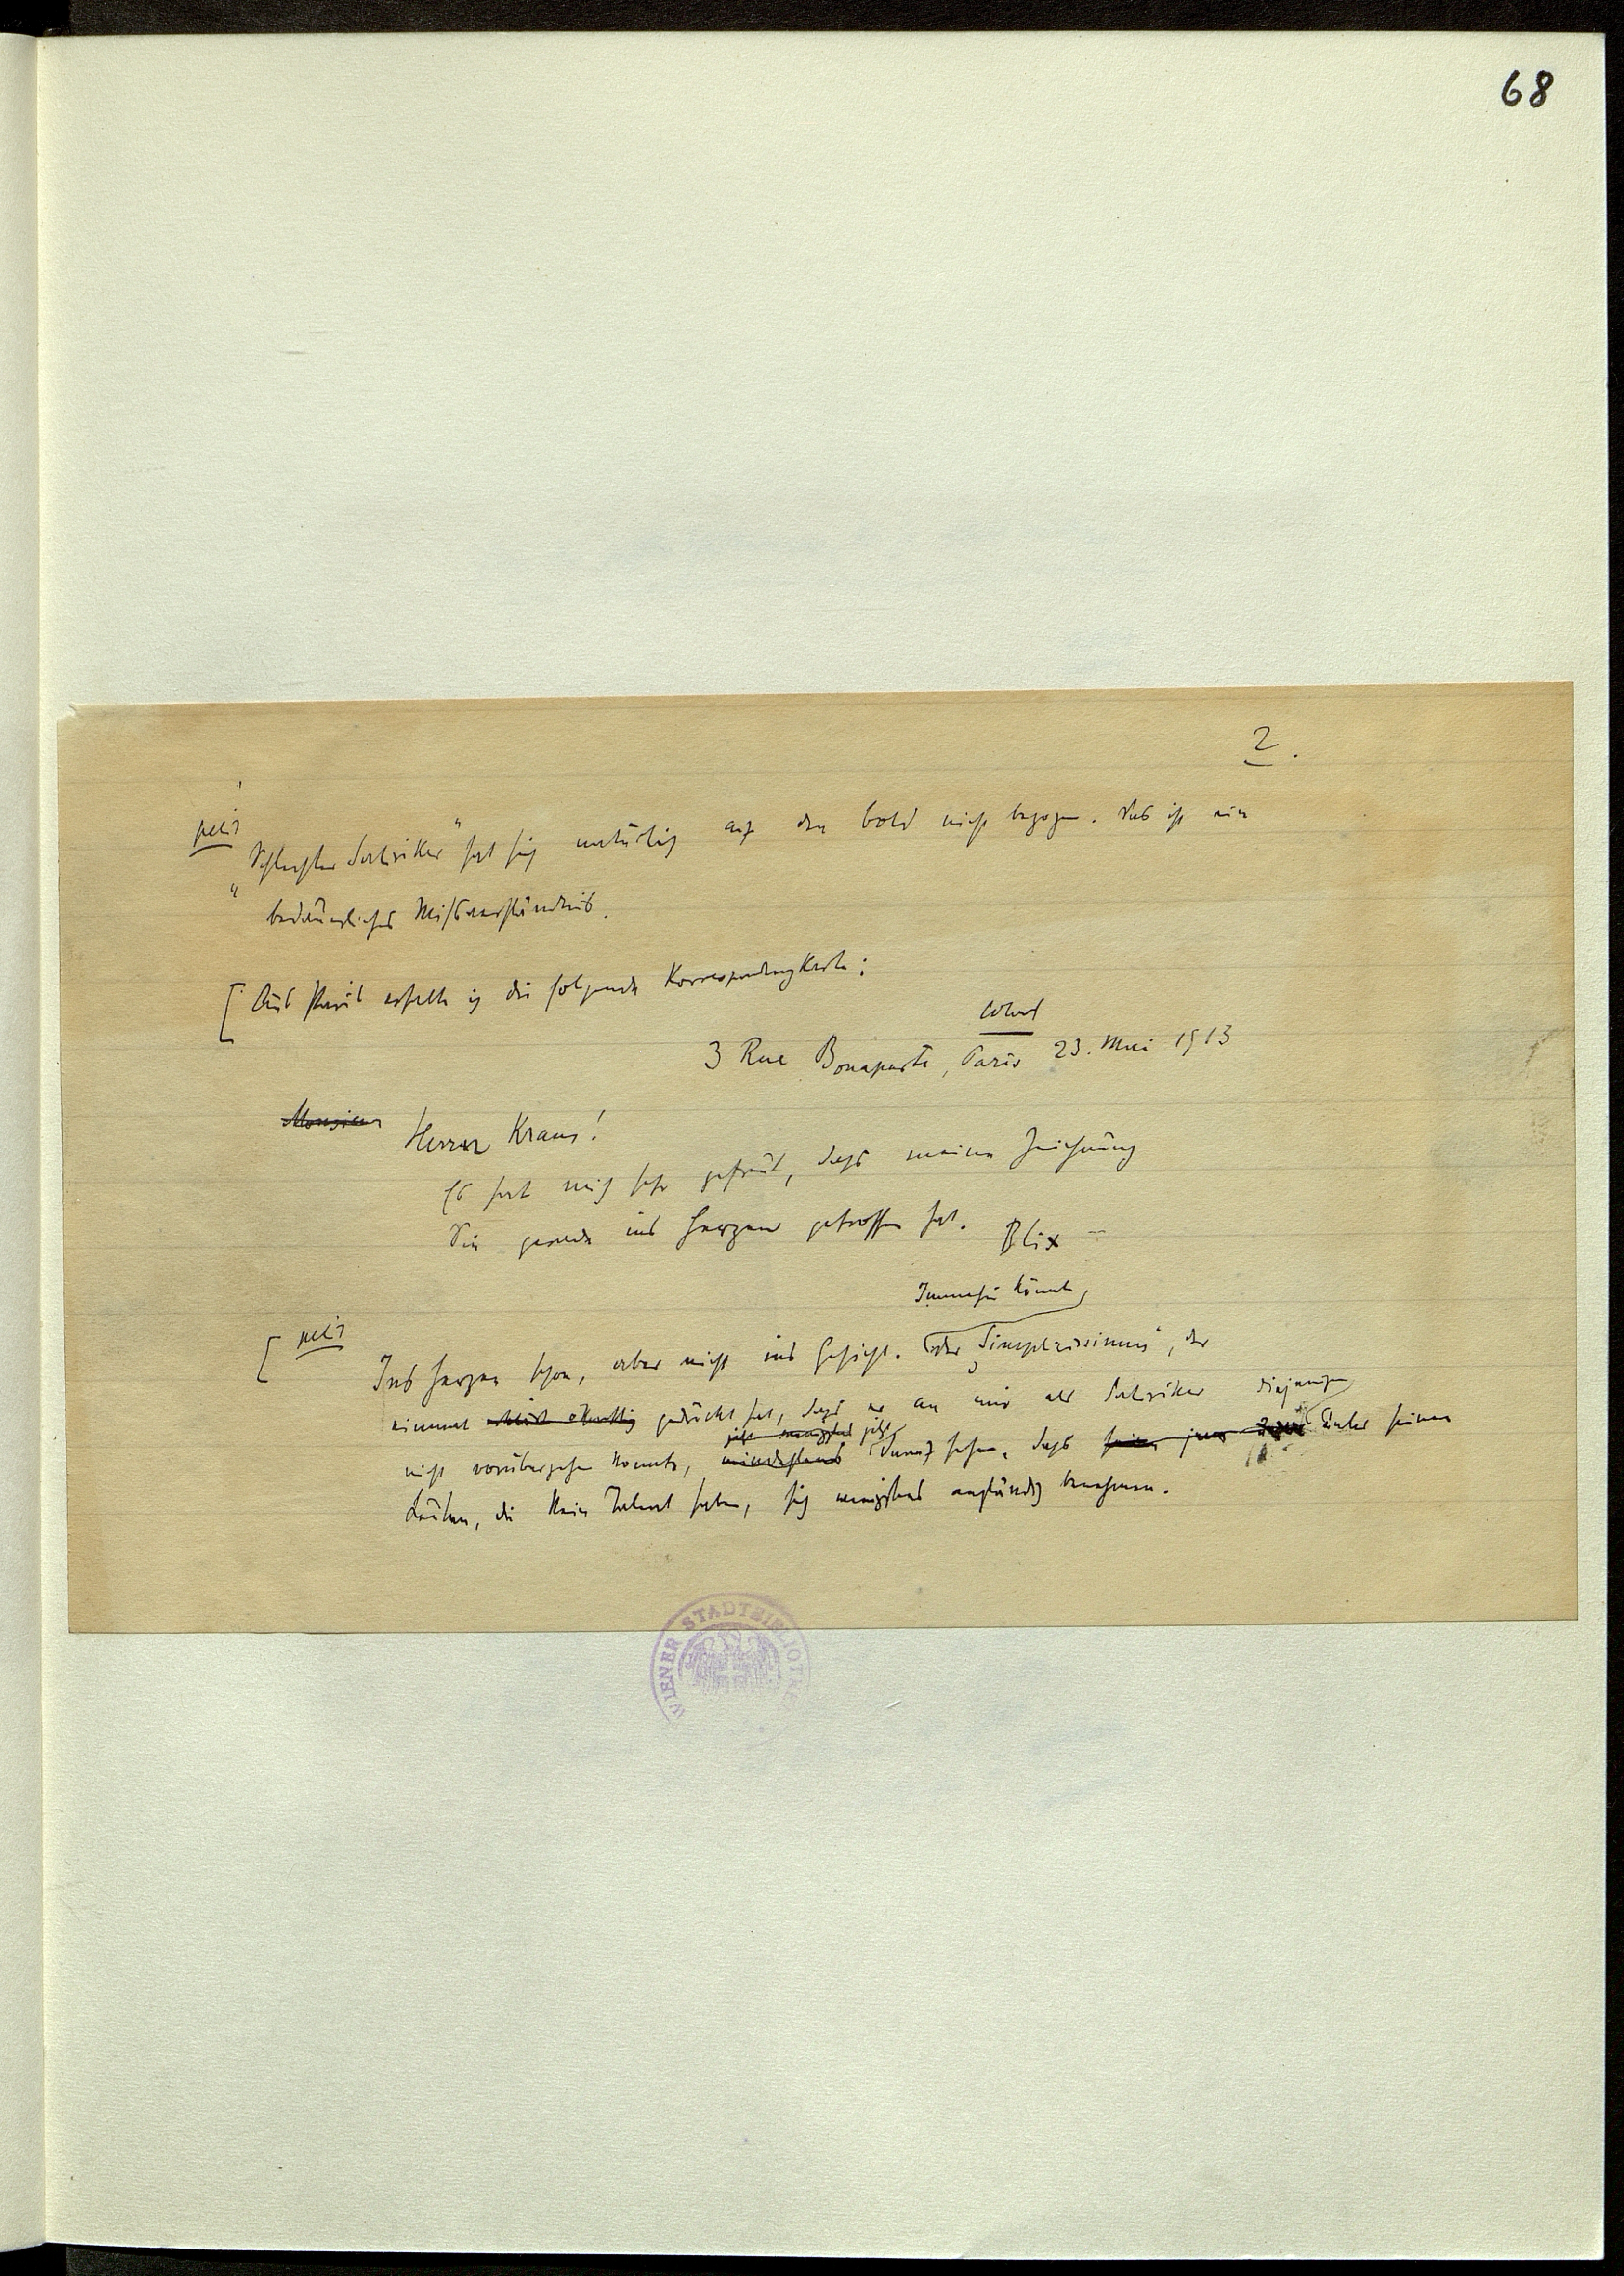 68
2.
petit
„Schlechter Satiriker“ hat sich natürlich auf den Bold nicht bezogen. Das ist ein
bedauerliches Mißverständnis.
[ Aus Paris erhalte ich die folgende Korrespondenzkarte:
3 Rue Bonaparte, Paris 23. Mai 1913
Monsieur Herrn Kraus!
Es hat mich sehr gefreut, dass meine Zeichnung
Sie gerade ins Herzen getroffen hat. Blix
Immerhin könnte
[ petit
Ins Herzen schon, aber nicht ins Gesicht. der Simplicissimus, der
einmal gedrückt hat, dass er an mir als Satiriker
nicht vorübergehen konnte, mindestens jetzt darauf sehen, dass diejenigen unter seinen
Leuten, die kein Talent haben, sich wenigstens anständig benehmen.
WIENER STADTBIBLIOTHEK